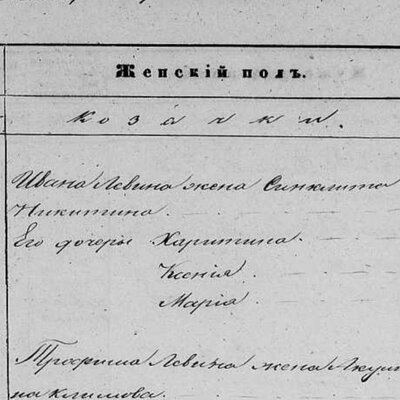 Женскій полъ.
козачки.
Ивана Левина жена Синклита
Никитина.
Его дочеры Харитина.
Ксенія.
Марія.
Трофима Левина жена Акули
на Климова.